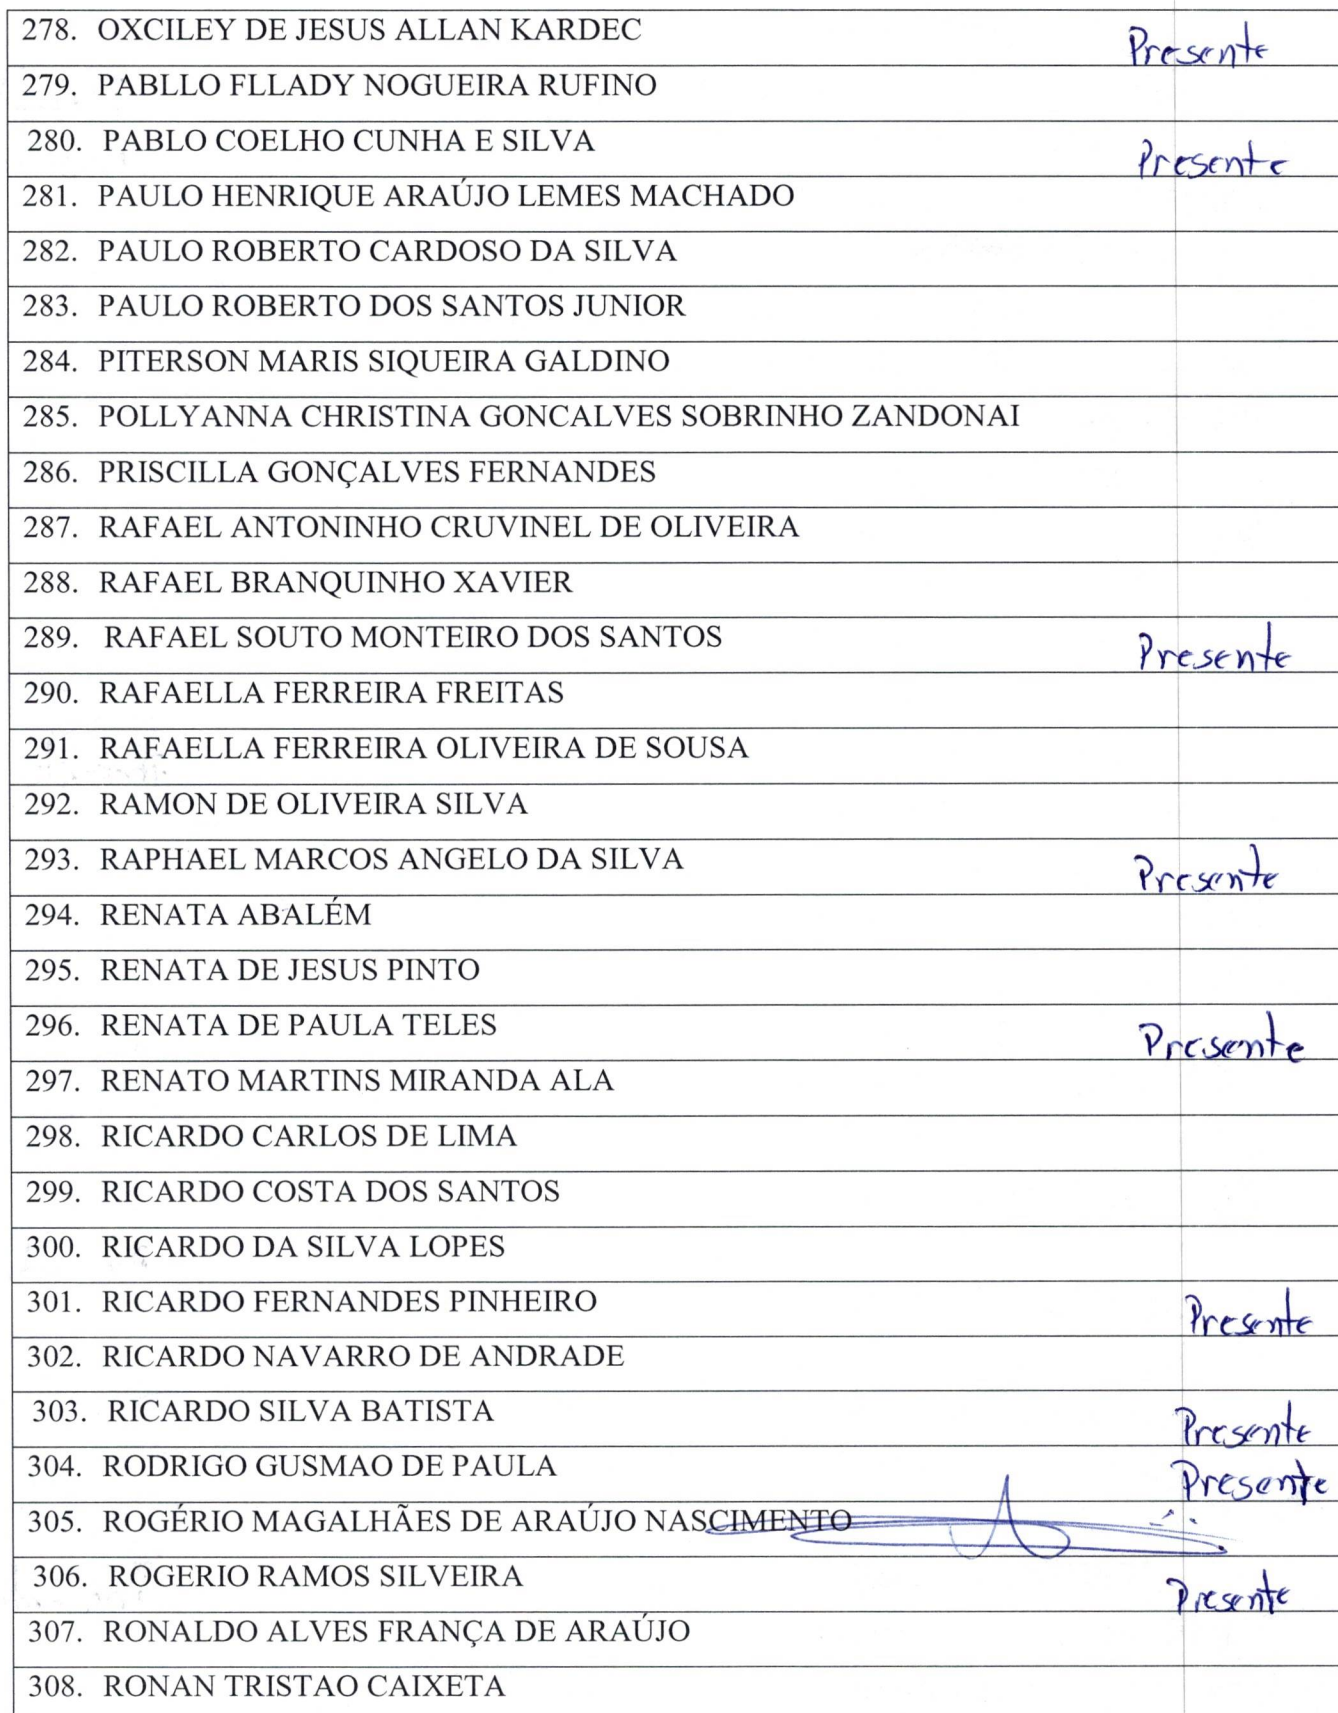 278. OXCILEY DE JESUS ALLAN KARDEC Presente
279. PABLLO FLLADY NOGUEIRA RUFINO
280. PABLO COELHO CUNHA E SILVA Presente
281. PAULO HENRIQUE ARAÚJO LEMES MACHADO
282. PAULO ROBERTO CARDOSO DA SILVA
283. PAULO ROBERTO DOS SANTOS JUNIOR
284. PITERSON MARIS SIQUEIRA GALDINO
285. POLLYANNA CHRISTINA GONCALVES SOBRINHO ZANDONAI
286. PRISCILLA GONÇALVES FERNANDES
287. RAFAEL ANTONINHO CRUVINEL DE OLIVEIRA
288. RAFAEL BRANQUINHO XAVIER
289. RAFAEL SOUTO MONTEIRO DOS SANTOS Presente
290. RAFAELLA FERREIRA FREITAS
291. RAFAELLA FERREIRA OLIVEIRA DE SOUSA
292. RAMON DE OLIVEIRA SILVA
293. RAPHAEL MARCOS ANGELO DA SILVA Presente
294. RENATA ABALÉM
295. RENATA DE JESUS PINTO
296. RENATA DE PAULA TELES Presente
297. RENATO MARTINS MIRANDA ALA
298. RICARDO CARLOS DE LIMA
299. RICARDO COSTA DOS SANTOS
300. RICARDO DA SILVA LOPES
301. RICARDO FERNANDES PINHEIRO Presente
302. RICARDO NAVARRO DE ANDRADE
303. RICARDO SILVA BATISTA Presente
304. RODRIGO GUSMAO DE PAULA Presente
305. ROGÉRIO MAGALHÃES DE ARAÚJO NASCIMENTO
306. ROGERIO RAMOS SILVEIRA Presente
307. RONALDO ALVES FRANÇA DE ARAÚJO
308. RONAN TRISTAO CAIXETA